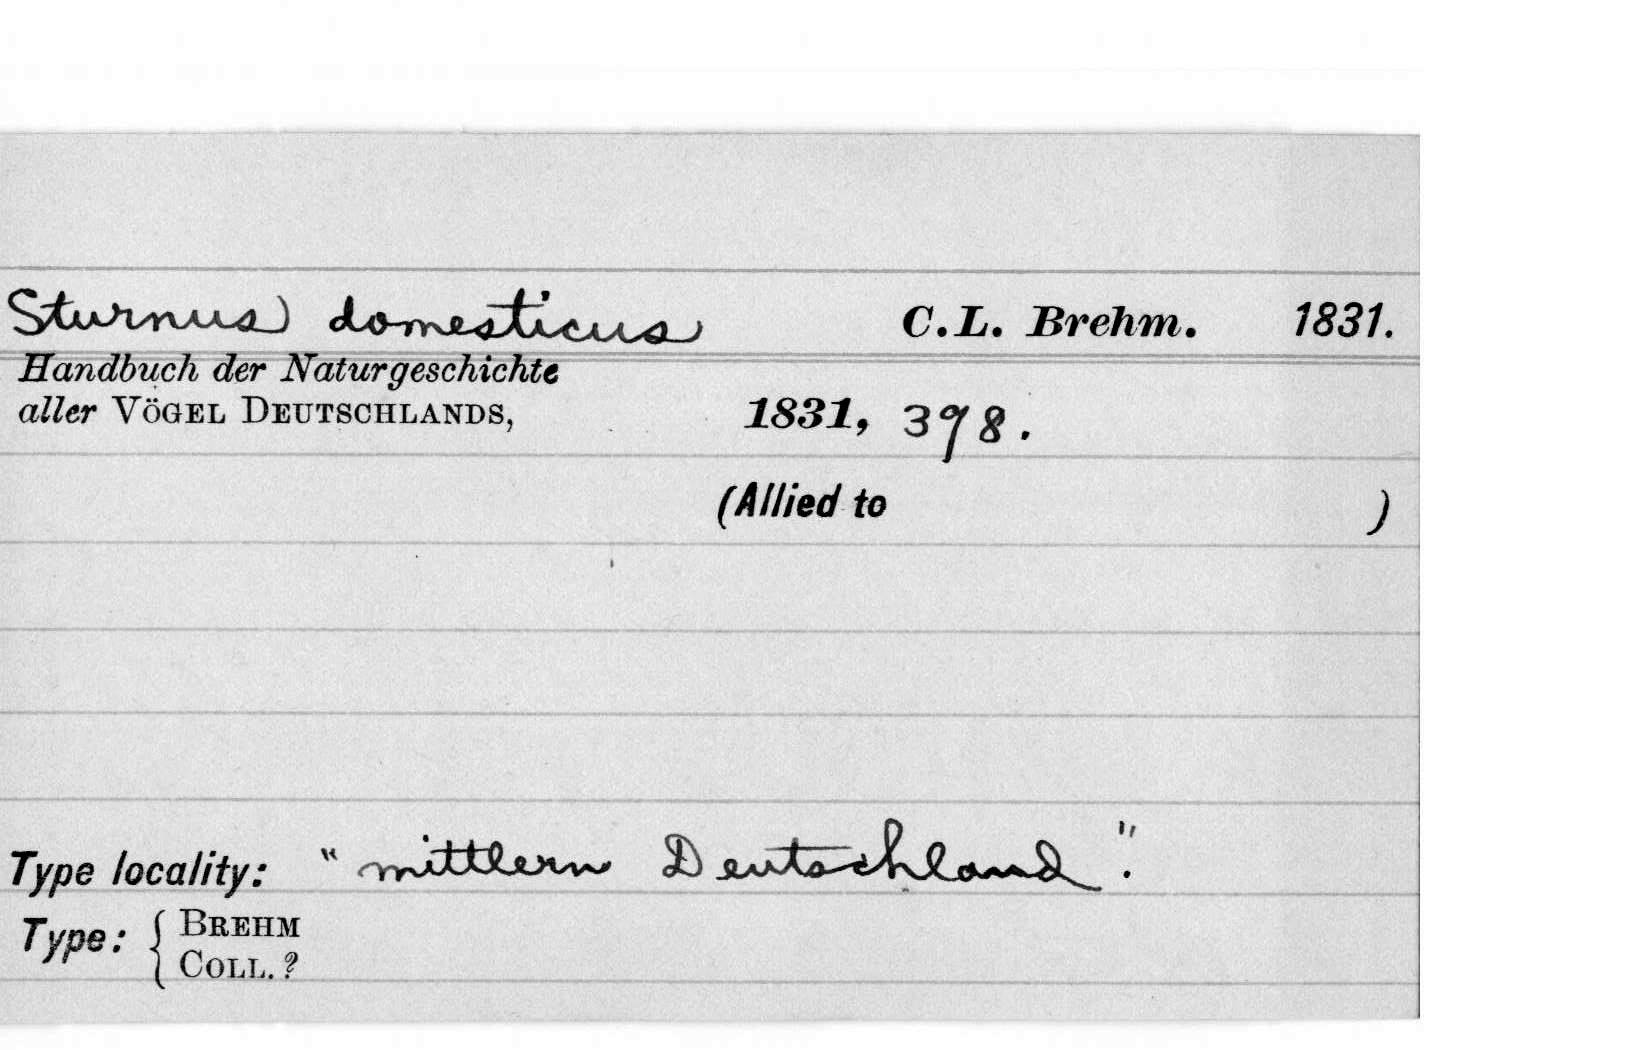 Sturnus domesticus C.L. Brehm. 1831.
Handbuch der Naturgeschichte
aller VÖGEL DEUTSCHLANDS, 1831, 398.
(Allied to )
Type locality: "mittlern Deutschland".
Type: { BREHM
COLL. ?